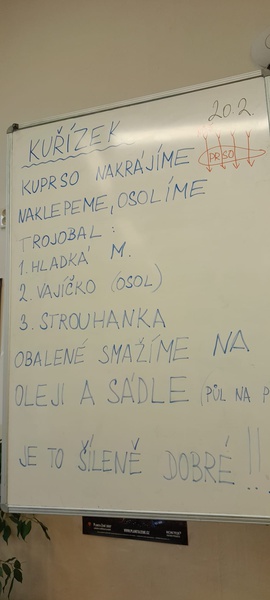 20.2.
KUŘÍZEK
KUPRSO NAKRÁJÍME
PRSO
NAKLEPEME, OSOLÍME
TROJOBAL:
1. HLADKÁ M.
2. VAJÍČKO (OSOL)
3. STROUHANKA
OBALENÉ SMAŽÍME NA
OLEJI A SÁDLE (PŮL NA P
JE TO ŠÍLENĚ DOBRÉ!!